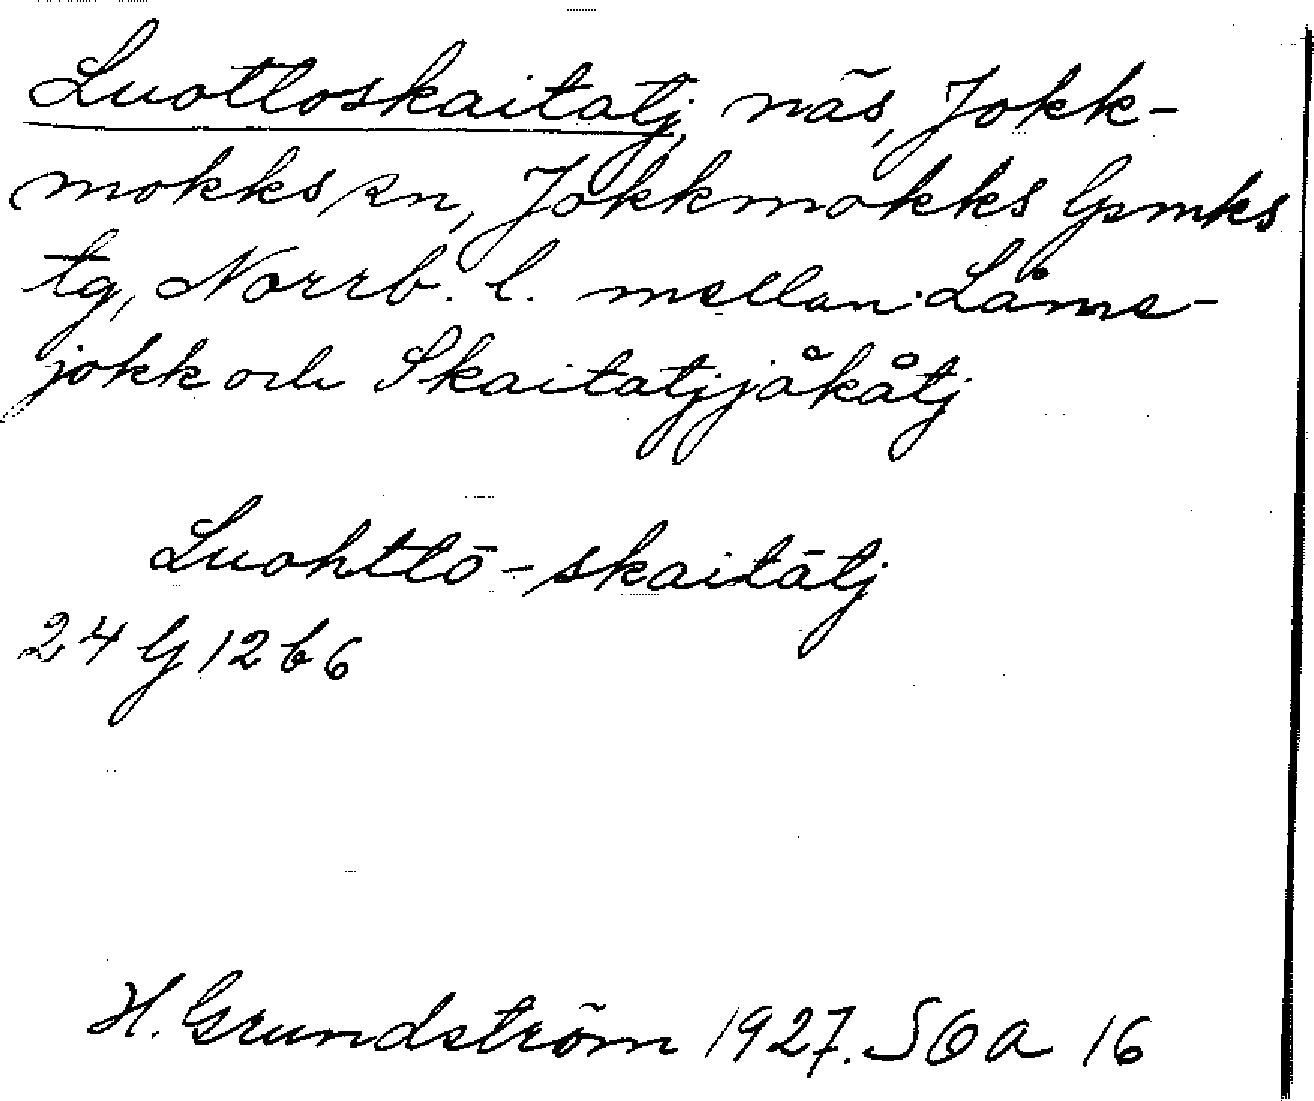 Luottoskaitatj, näs, Jokk-
mokks sn, Jokkmokks lpmks
tg, Norrb. l. mellan Låme-
jokk och Skaitatjjåkåtj
Luohttō-skaitātj
24 G 12 b 6
H. Grundström 1927. SOA 16